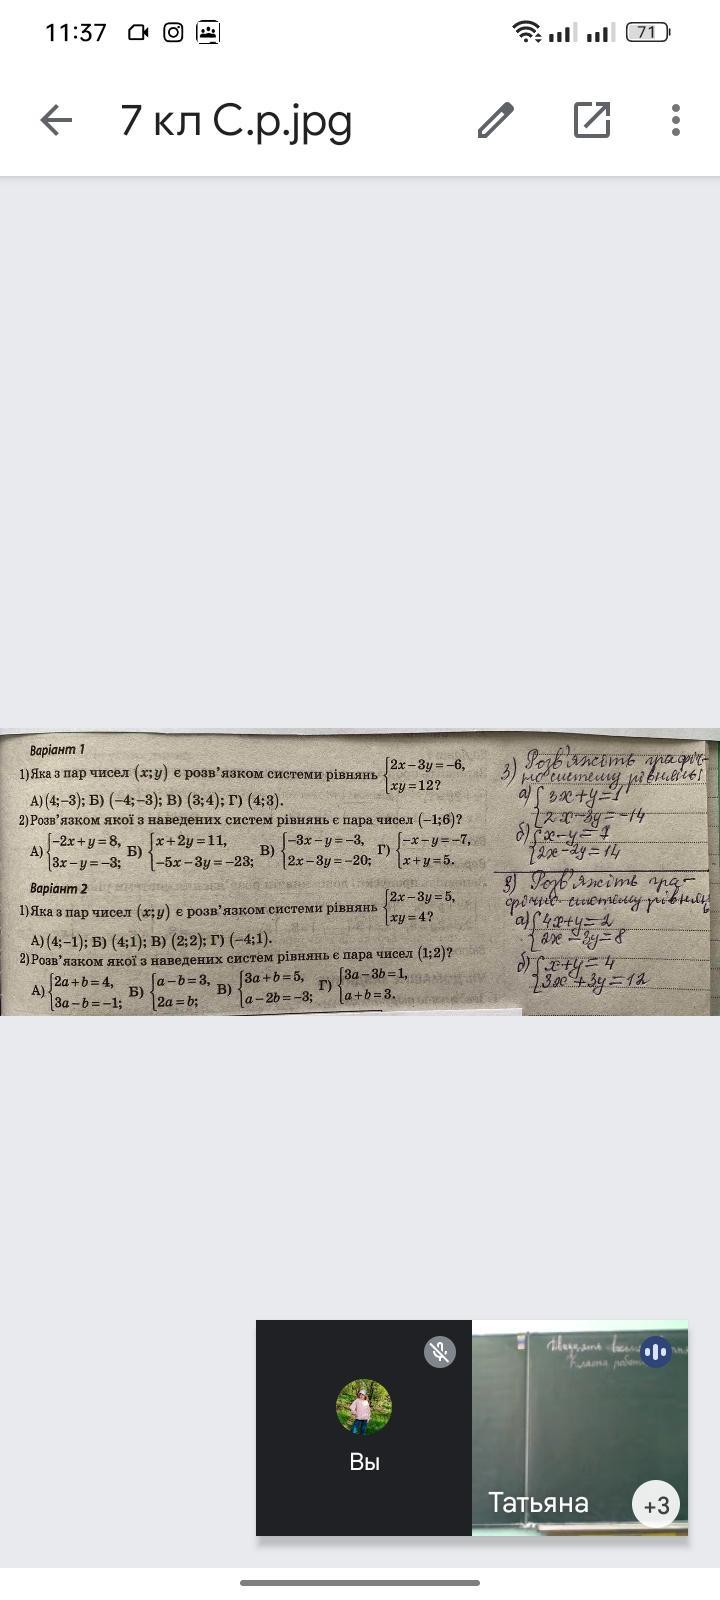 11:37
71
7 кл С.р.jpg
Варіант 1
1) Яка з пар чисел (x; y) є розв'язком системи рівнянь {2x − 3y = −6, xy = 12?
А) (4; −3); Б) (−4; −3); В) (3; 4); Г) (4; 3).
2) Розв'язком якої з наведених систем рівнянь є пара чисел (−1; 6)?
А) {−2x + y = 8, 3x − y = −3; Б) {x + 2y = 11, −5x − 3y = −23; В) {−3x − y = −3, 2x − 3y = −20; Г) {−x − y = −7, x + y = 5.
Варіант 2
1) Яка з пар чисел (x; y) є розв'язком системи рівнянь {2x − 3y = 5, xy = 4?
А) (4; −1); Б) (4; 1); В) (2; 2); Г) (−4; 1).
2) Розв'язком якої з наведених систем рівнянь є пара чисел (1; 2)?
А) {2a + b = 4, 3a − b = −1; Б) {a − b = 3, 2a = b; В) {3a + b = 5, a − 2b = −3; Г) {3a − 3b = 1, a + b = 3.
3) Розв'яжіть графіч-
но систему рівнянь:
а) {3x + y = 1
2x − 3y = −14
б) {x − y = 7
2x − 2y = 14
3) Розв'яжіть гра-
фічно систему рівнянь
а) {4x + y = 2
2x − 3y = 8
б) {x + y = 4
3x + 3y = 12
Класна
Вы
Татьяна
+3